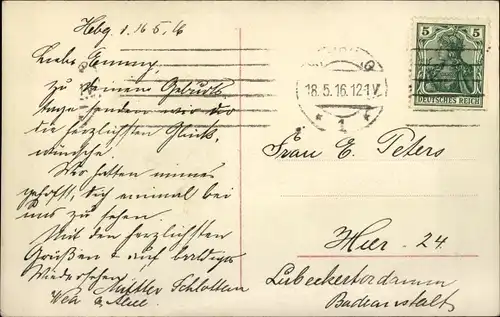 Hbg. 1. 16 5. 16
Liebe Emmy,
Zu Deinem Geburts
tage senden wir dir
die herzlichsten Glück-
wünsche.
Wir hatten immer
gehofft, dich einmal bei
uns zu sehen.
Mit den herzlichsten
Grüßen & auf baldiges
Wiedersehen
18.5.16.12-1V.
* 1 *
5 5
DEUTSCHES REICH
Frau E. Peters
Hier - 24
Lübeckertordamm
Badeanstalt